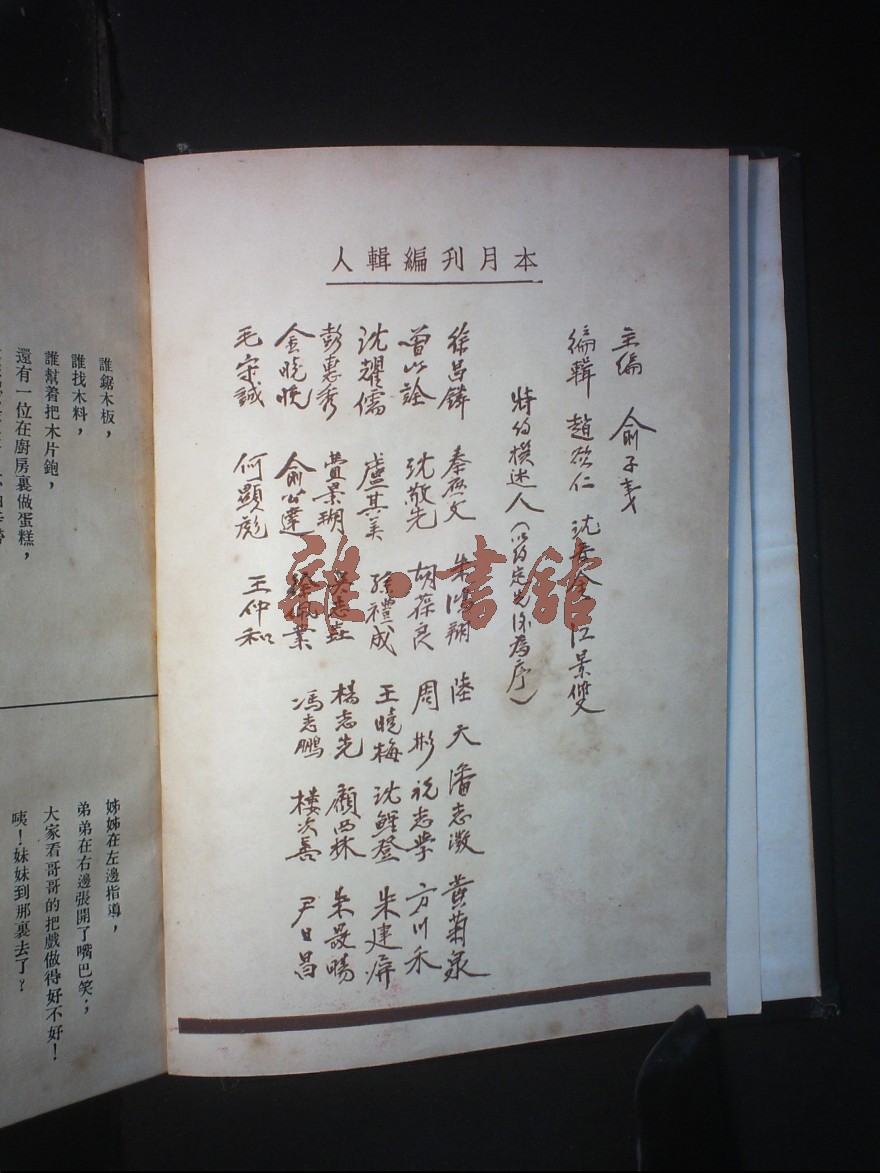 本月刊編輯人
主編 俞子夷
編輯 趙欲仁 沈 江景雙
特約撰述人(以約定先後為序)
徐昌 秦 文 朱鴻翔 陸天 潘志澂 黃菊泉
曾以詮 沈敬先 胡葆良 周彬 祝志學 方川禾
沈耀儒 盧其美 孫禮成 王曉梅 沈鯉登 朱建屏
彭惠秀 景瑚 吳志 楊志先 顧西林 朱晸暘
金曉晚 俞公達 徐佩業 馮志鵬 樓次善 尹日昌
毛守誠 何顯彪 王仲和
雜·書館
誰鋸木板,
誰找木料,
誰幫着把木片鉋,
還有一位在廚房裏做蛋糕,
姊姊在左邊指導,
弟弟在右邊張開了嘴巴笑;
大家看哥哥的把戲做得好不好!
咦!妹妹到那裏去了?